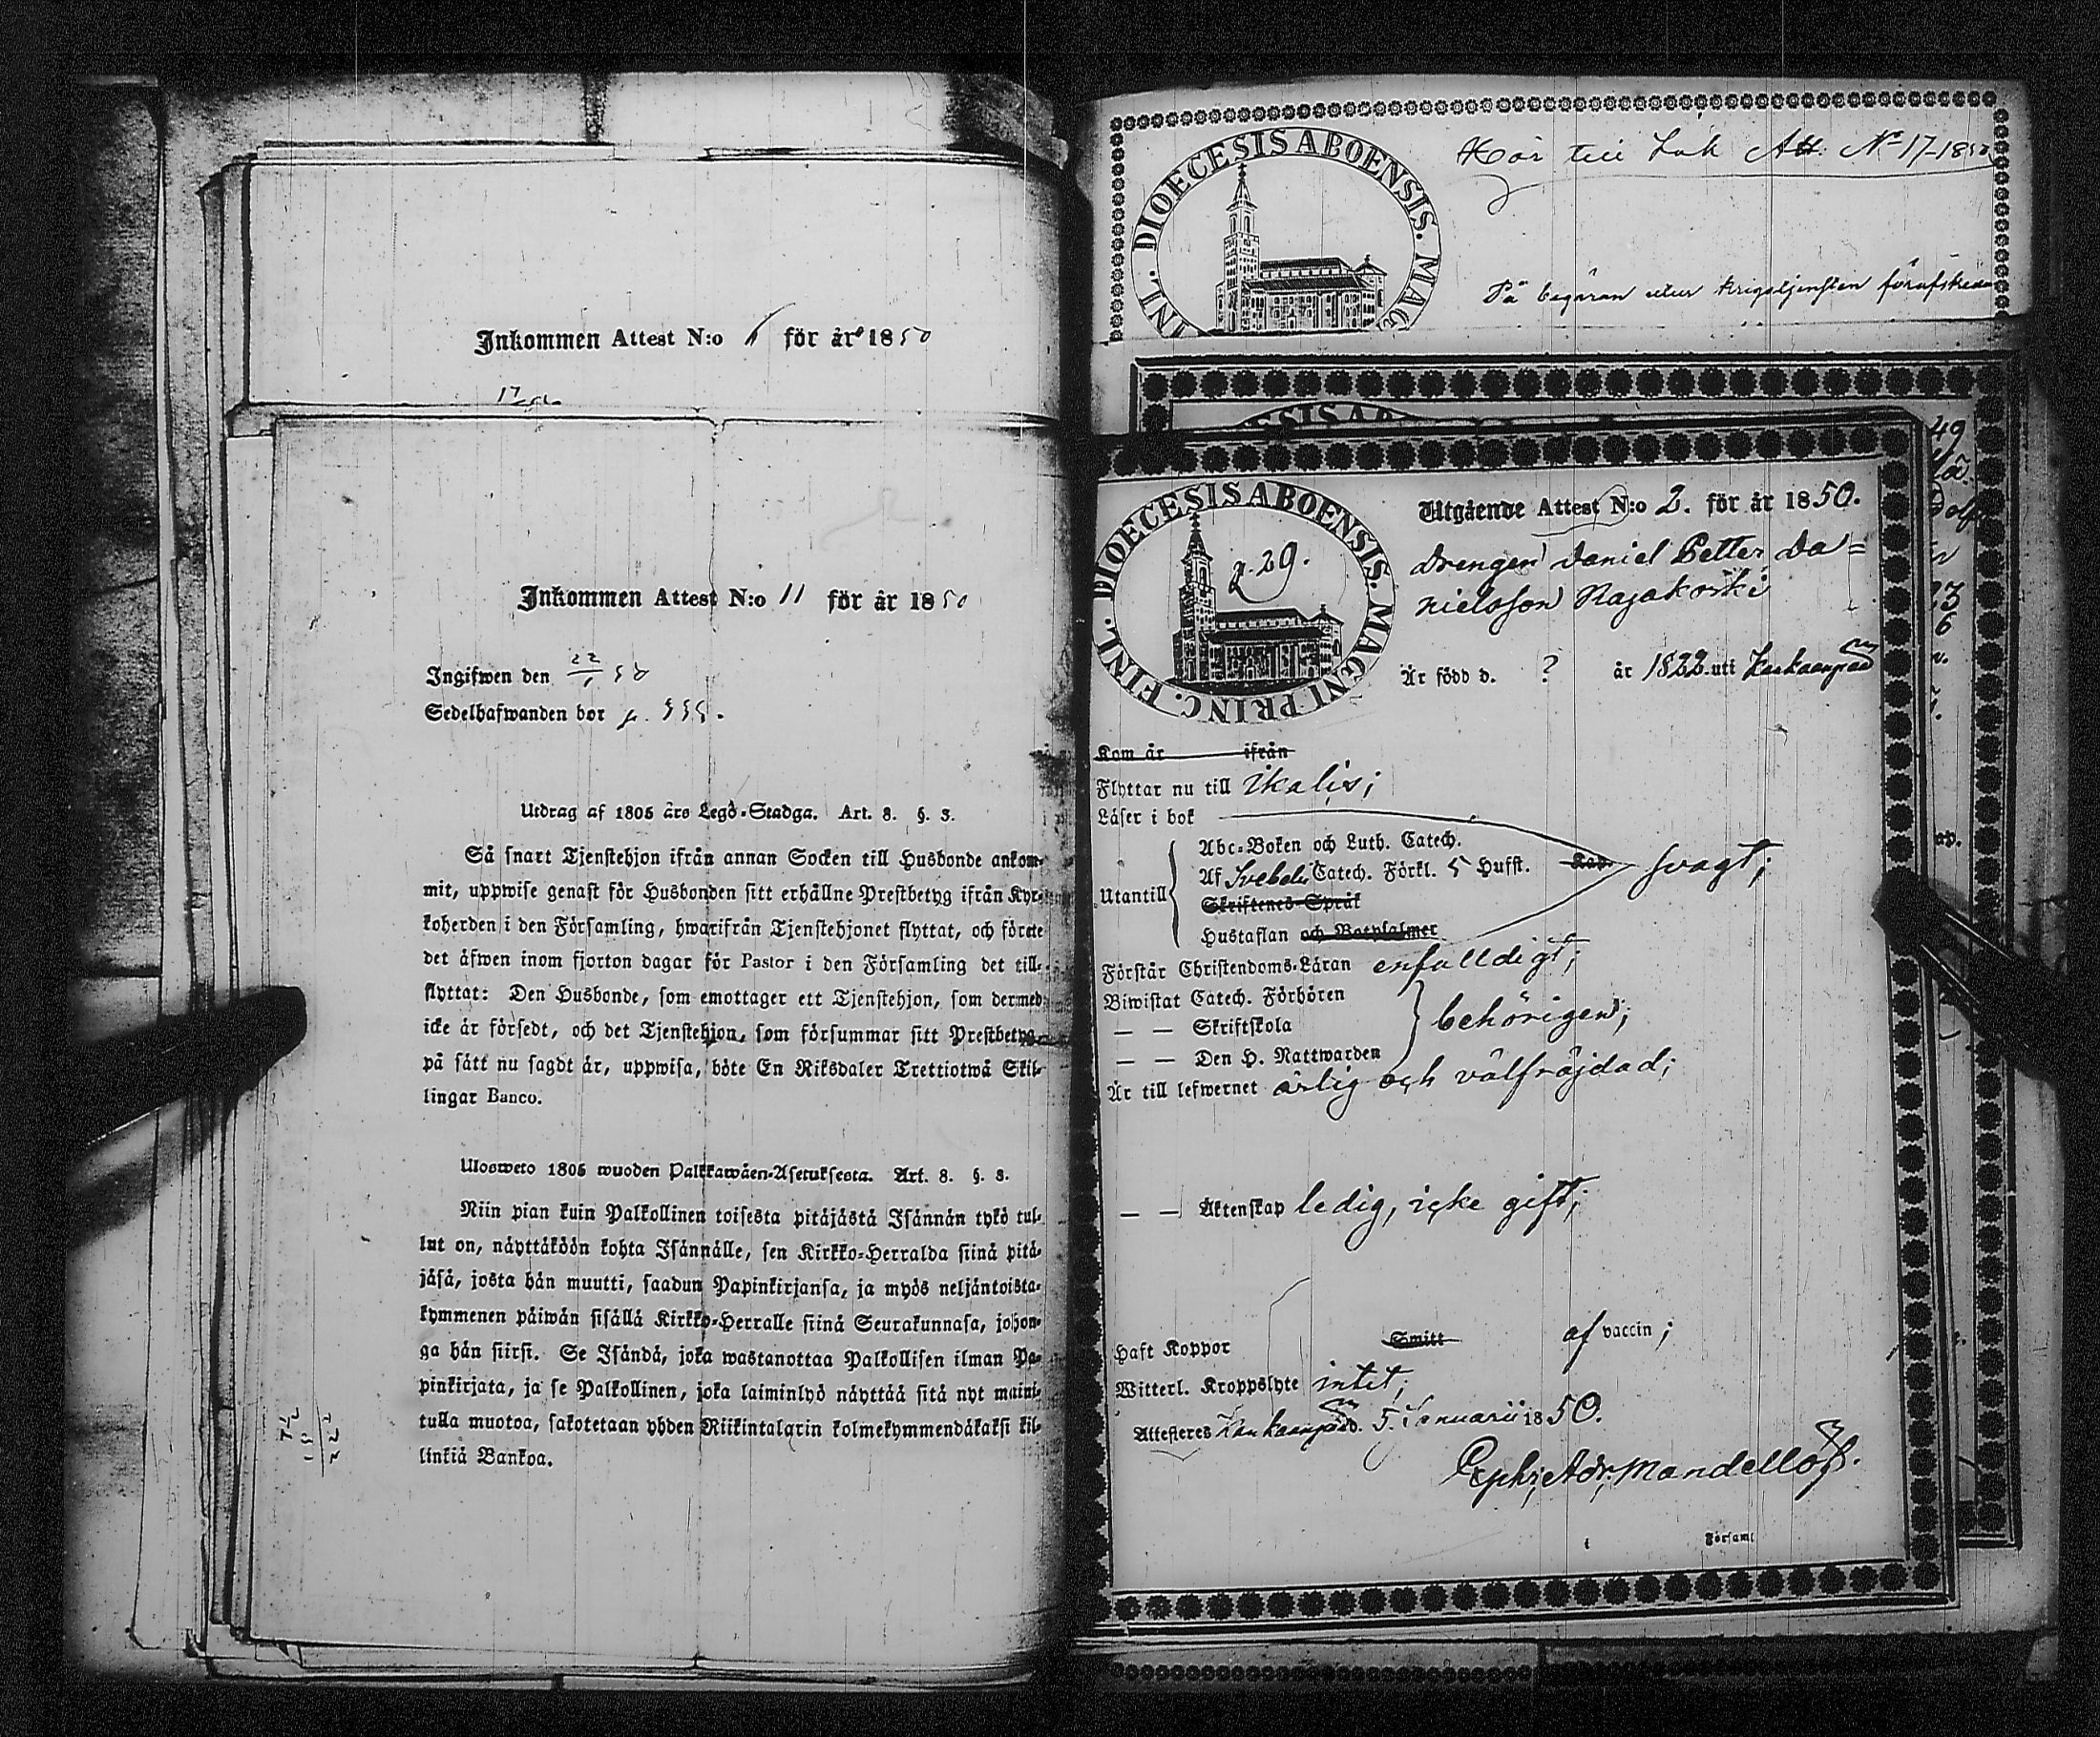 Inkommen Attest N:o 6 för år 1850
Inkommen Attest N:o 11 för år 1850
Ingifwen den 22/1 50
Sedelhafwanden bor p. 555.
Utdrag af 1805 års Lego-Stadga. Art. 8. §. 3.
Så snart Tjenstehjon ifrån annan Socken till Husbonde ankom-
mit, uppwise genast för Husbonden sitt erhållne Prestbetyg ifrån Kyr-
koherden i den Församling, hwarifrån Tjenstehjonet flyttat, och förete
det äfwen inom fjorton dagar för Pastor i den Församling det till-
flyttat: Den Husbonde, som emottager ett Tjenstehjon, som dermed
icke är försedt, och det Tjenstehjon, som försummar sitt Prestbetyg
på sätt nu sagdt är, uppwisa, böte En Riksdaler Trettiotwå Skil-
lingar Banco.
Ulosweto 1805 wuoden Palkkawäen-Asetuksesta. Art. 8. §. 3.
Niin pian kuin Palkollinen toisesta pitäjästä Isännän tykö tul-
lut on, näyttäköön kohta Isännälle, sen Kirkko-Herralda siinä pitä-
jäsä, josta hän muutti, saadun Papinkirjansa, ja myös neljäntoista-
kymmenen päiwän sisällä Kirkko-Herralle siinä Seurakunnasa, johon-
ga hän siirsi. Se Isändä, joka wastanottaa Palkollisen ilman Pa-
pinkirjata, ja se Palkollinen, joka laiminlyö näyttää sitä nyt maini-
tulla muotoa, sakotetaan yhden Riikintalarin kolmekymmendäkaksi kil-
linkiä Bankoa.
DIOECESIS ABOENSIS. MAG
FINL.
Hör till Lük Att. No 17-1850
På begäran utur krigstjensten
SIS AB
DIOECESIS ABOENSIS. MAGNI PRINC. FINL.
p. 29.
Utgående Attest N:o 2. för år 1850.
Drengen Daniel Petter Da=
nielsson Rajakoski
Är född d. ? år 1822 uti Kankaanpää
Kom år ifrån
Flyttar nu till Ikalis;
Läser i bok
Abc-Boken och Luth. Catech.
Utantill Af Svebelii Catech. Förkl. 5 Hufst. Kap. svagt;
Skriftenes Språk
Hustaflan och Botpsalmer
Förstår Christendoms-Läran enfalldigt;
Biwistat Catech. Förhören
— — Skriftskola behörigen;
— — Den H. Nattwarden
Är till lefwernet ärlig och välfräjdad;
— — Äktenskap ledig, icke gift;
Haft Koppor Smitt af vaccin;
Witterl. Kroppslyte intet;
Attesteras Kankaanpää d. 5. Januarii 1850.
Ephr. Adr. Mandellöf.
Församl